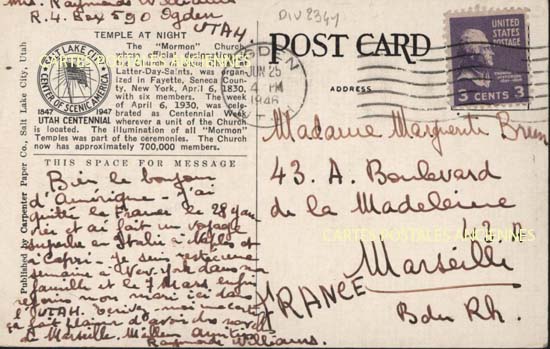 Mrs. Raymonds Williams
R.4. Box 590 Ogden
UTAH.
DIV2344
TEMPLE AT NIGHT
The "Mormon" Church
whose official designation is
Latter-Day-Saints, was organ-
ized in Fayette, Seneca Coun-
ty, New York, April 6, 1830,
with six members. The week
of April 6, 1930, was cele-
brated as Centennial Week
wherever a unit of the Church
is located. The illumination of all "Mormon"
Temples was part of the ceremonies. The Church
now has approximately 700,000 members.
SALT LAKE CITY
CENTER OF SCENIC AMERICA
1847 1947
UTAH CENTENNIAL
Published by Carpenter Paper Co., Salt Lake City, Utah
THIS SPACE FOR MESSAGE
Bien le bonjour
d'Amérique - j'ai
quitté la France le 28 jan
vier et ai fait un voyage
superbe en Italie à Naples et
Capri. je suis restée une
semaine à New.york dans ma
famille et le 7 Mars enfin
rejoins mon mari ici dans
l'UTAH. écrivez moi ma carte
fait plaisir d'avoir des nouv.
de Marseille. Meilleures amitiés
Raymonde Williams.
OGDEN
JUN 25
4 PM
1946
UTAH
POST CARD
ADDRESS
UNITED STATES POSTAGE
3 CENTS 3
Madame Marguerite Brun
43. A. Boulevard
de la Madeleine
Marseille
FRANCE
Bdu Rh.
CARTES POSTALES ANCIENNES
CARTES POSTALES ANCIENNES